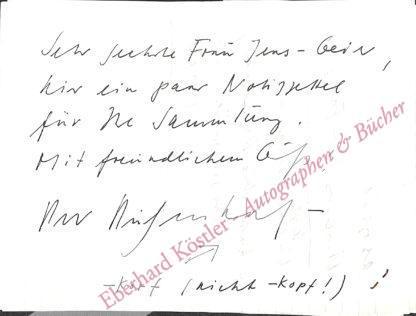 Sehr geehrte Frau Jens-
hier ein paar Notizzettel
für Ihre Sammlung.
Mit freundlichem Gruß
(nicht -kopf!)
Eberhard Köstler - Autographen & Bücher